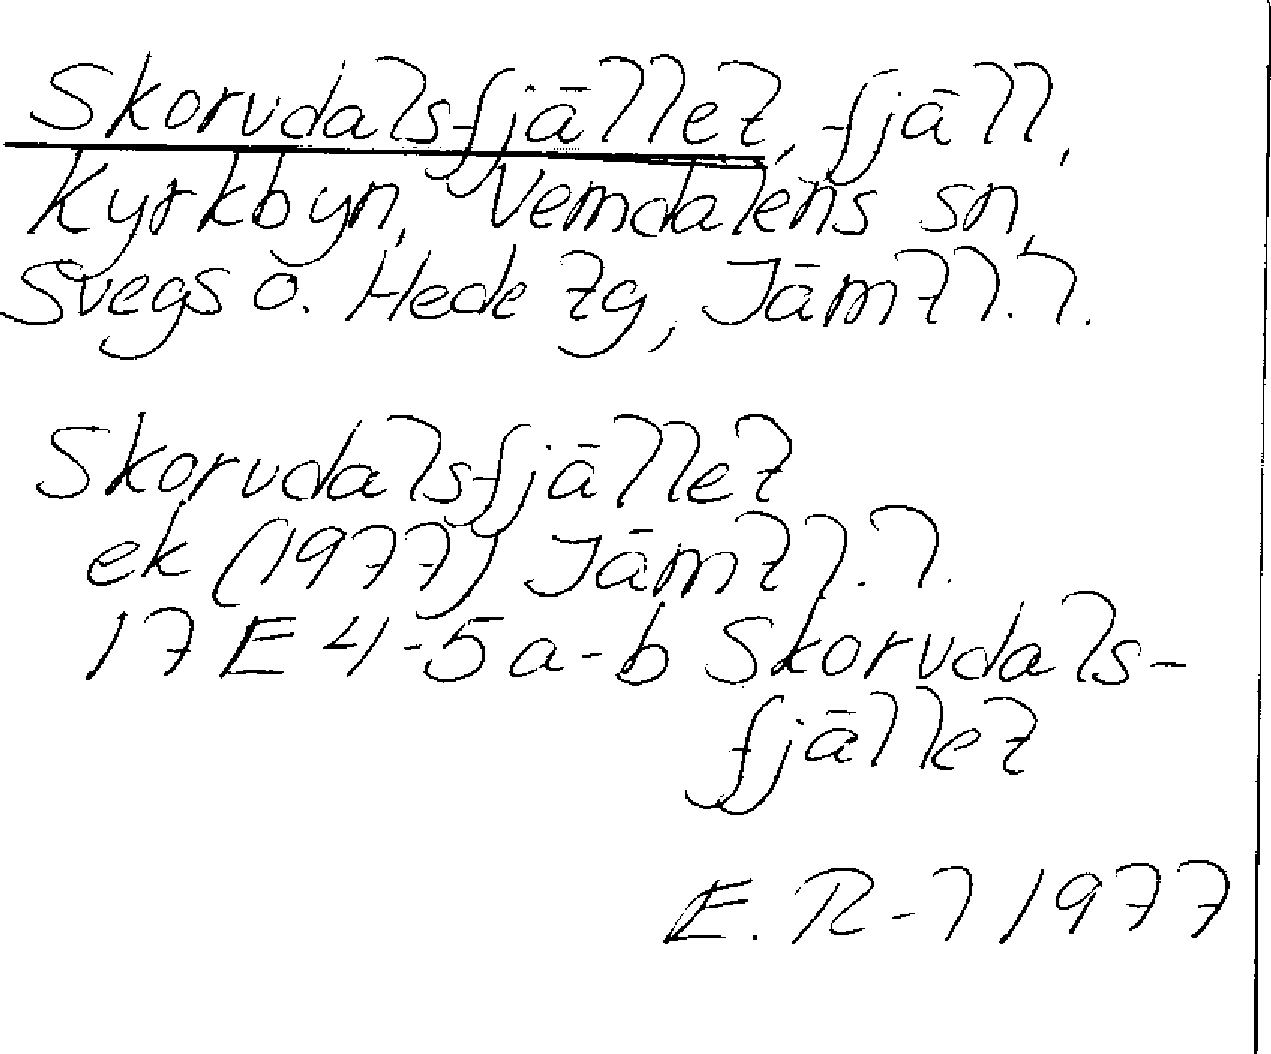 Skorvdalsfjället, fjäll,
Kyrkbyn, Vemdalens sn,
Svegs o. Hede tg, Jämtl. l.
Skorvdalsfjället
ek (1977) Jämtl. l.
17 E 4-5 a-b Skorvdals-
fjället
E. R-l 1977